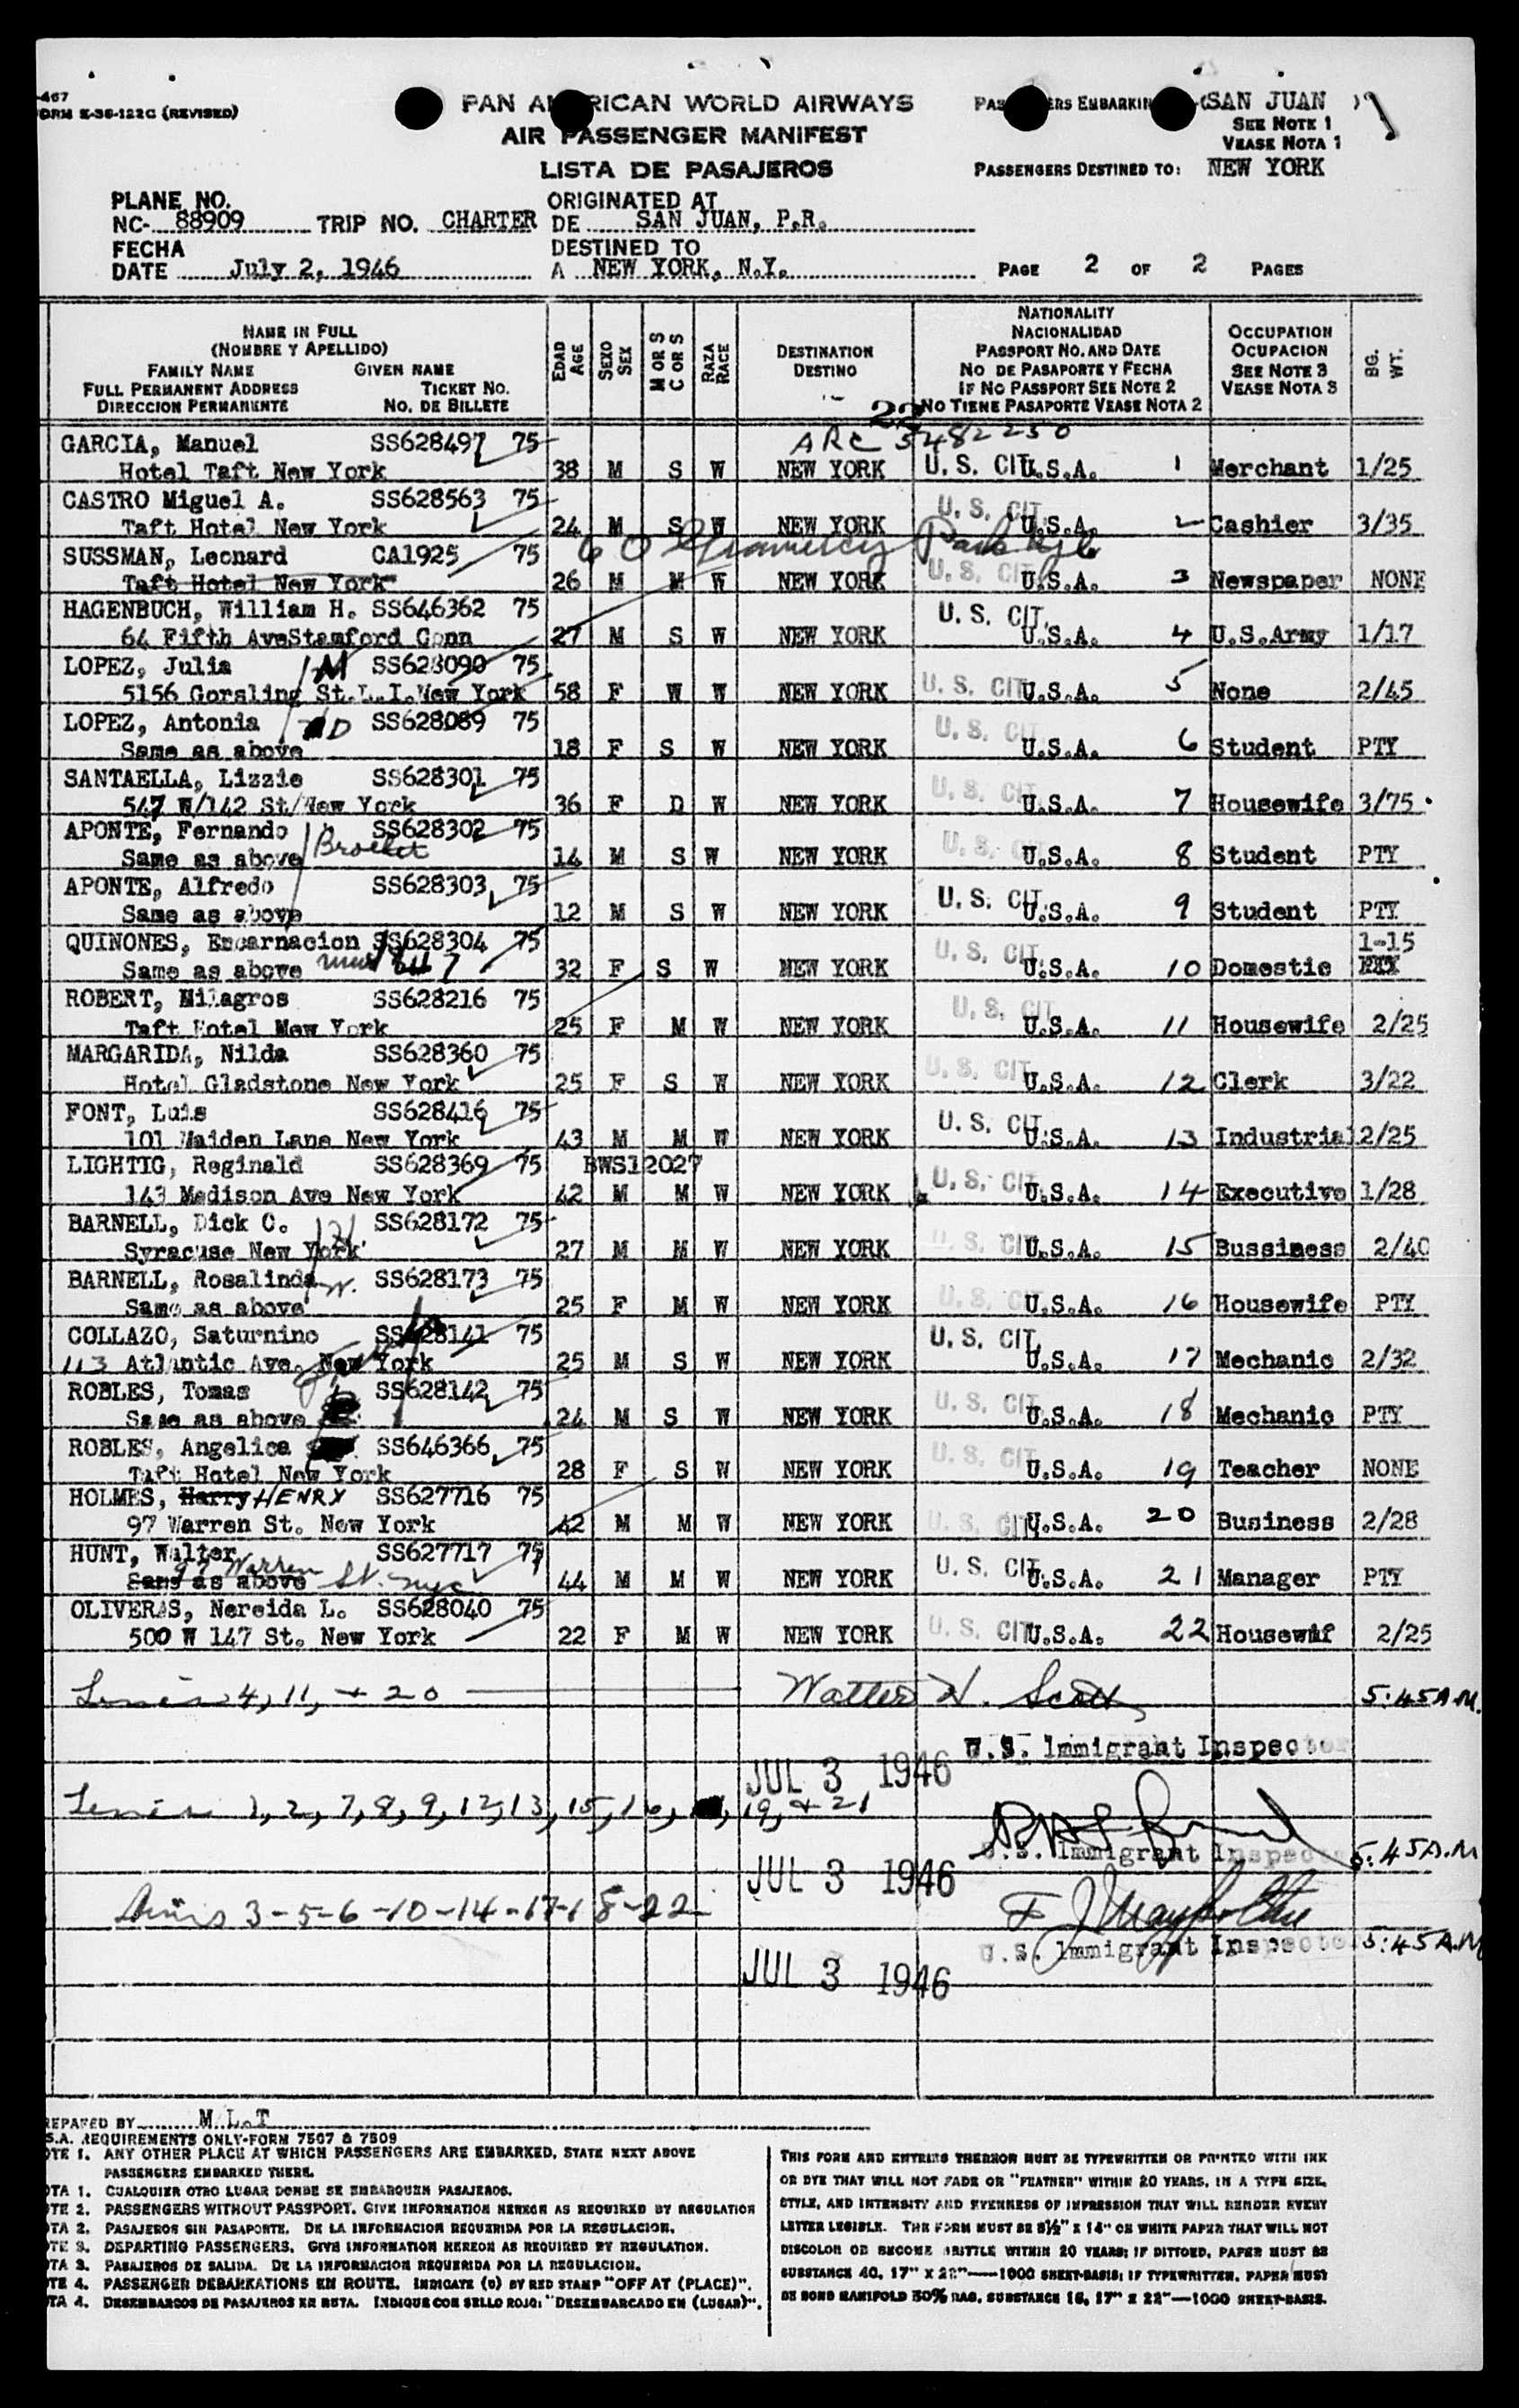 -467
ORM K-36-122G (REVISED)
PAN AMERICAN WORLD AIRWAYS
AIR PASSENGER MANIFEST
LISTA DE PASAJEROS
PASSENGERS EMBARKING (SAN JUAN )
SEE NOTE 1
VEASE NOTA 1
PASSENGERS DESTINED TO: NEW YORK
PLANE NO.
NC- 88909 TRIP NO. CHARTER
ORIGINATED AT
DE SAN JUAN, P.R.
FECHA
DATE July 2, 1946
DESTINED TO
A NEW YORK, N.Y.
PAGE 2 OF 2 PAGES
NAME IN FULL
(NOMBRE Y APELLIDO)
FAMILY NAME GIVEN NAME
FULL PERMANENT ADDRESS TICKET NO.
DIRECCION PERMANENTE NO. DE BILLETE
EDAD AGE
SEXO SEX
M OR S C OR S
RAZA RACE
DESTINATION
DESTINO
NATIONALITY
NACIONALIDAD
PASSPORT NO. AND DATE
NO DE PASAPORTE Y FECHA
IF NO PASSPORT SEE NOTE 2
NO TIENE PASAPORTE VEASE NOTA 2
OCCUPATION
OCUPACION
SEE NOTE 3
VEASE NOTA 3
BG. WT.
22
GARCIA, Manuel SS628497 75 ARC 5482250
Hotel Taft New York 38 M S W NEW YORK U. S. CIT. U.S.A. 1 Merchant 1/25
CASTRO Miguel A. SS628563 75 U. S. CIT.
Taft Hotel New York 24 M S W NEW YORK U.S.A. 2 Cashier 3/35
SUSSMAN, Leonard CA1925 75 60 Gramercy Park NYC
Taft Hotel New York 26 M M W NEW YORK U. S. CIT U.S.A. 3 Newspaper NONE
HAGENBUCH, William H. SS646362 75 U. S. CIT.
64 Fifth AveStamford Conn 27 M S W NEW YORK U.S.A. 4 U.S.Army 1/17
LOPEZ, Julia M SS628090 75
5156 Gorsling St.L.I.New York 58 F W W NEW YORK U. S. CIT U.S.A. 5 None 2/45
LOPEZ, Antonia D SS628089 75 U. S. CIT
Same as above 18 F S W NEW YORK U.S.A. 6 Student PTY
SANTAELLA, Lizzie SS628301 75 U. S. CIT
547 W/142 St/New York 36 F D W NEW YORK U.S.A. 7 Housewife 3/75
APONTE, Fernando SS628302 75 U. S. CIT
Same as above Brother 14 M S W NEW YORK U.S.A. 8 Student PTY
APONTE, Alfredo SS628303 75 U. S. CIT
Same as above 12 M S W NEW YORK U.S.A. 9 Student PTY
QUINONES, Encarnacion SS628304 75 U. S. CIT 1-15
Same as above 32 F S W NEW YORK U.S.A. 10 Domestic
ROBERT, Milagros SS628216 75 U. S. CIT
Taft Hotel New York 25 F M W NEW YORK U.S.A. 11 Housewife 2/25
MARGARIDA, Nilda SS628360 75 U. S. CIT
Hotel Gladstone New York 25 F S W NEW YORK U.S.A. 12 Clerk 3/22
FONT, Luis SS628416 75 U. S. CIT
101 Maiden Lane New York 43 M M W NEW YORK U.S.A. 13 Industrial 2/25
LIGHTIG, Reginald SS628369 75 BWS12027 U. S. CIT
143 Madison Ave New York 42 M M W NEW YORK U.S.A. 14 Executive 1/28
BARNELL, Dick C. SS628172 75
Syracuse New York 27 M M W NEW YORK U. S. CIT U.S.A. 15 Bussiness 2/40
BARNELL, Rosalinda W. SS628173 75
Same as above 25 F M W NEW YORK U. S. CIT U.S.A. 16 Housewife PTY
COLLAZO, Saturnino SS628141 75 U. S. CIT.
113 Atlantic Ave. New York 25 M S W NEW YORK U.S.A. 17 Mechanic 2/32
ROBLES, Tomas SS628142 75 U. S. CIT
Same as above 24 M S W NEW YORK U.S.A. 18 Mechanic PTY
ROBLES, Angelica SS646366 75 U. S. CIT
Taft Hotel New York 28 F S W NEW YORK U.S.A. 19 Teacher NONE
HOLMES, Harry HENRY SS627716 75
97 Warren St. New York 42 M M W NEW YORK U. S. CIT U.S.A. 20 Business 2/28
HUNT, Walter SS627717 75 U. S. CIT
Same as above 97 Warren St. NYC 44 M M W NEW YORK U.S.A. 21 Manager PTY
OLIVERAS, Nereida L. SS628040 75
500 W 147 St. New York 22 F M W NEW YORK U. S. CIT U.S.A. 22 Housewif 2/25
Lines 4, 11, + 20 Walter H. Scott 5:45 A.M.
U.S. Immigrant Inspector
JUL 3 1946
Lines 1, 2, 7, 8, 9, 12, 13, 15, 16, 19, + 21
U.S. Immigrant Inspector 5:45 A.M
JUL 3 1946
Lines 3-5-6-10-14-17-18-22
U.S. Immigrant Inspector 5:45 A.M
JUL 3 1946
REPARED BY M L.T
S.A. REQUIREMENTS ONLY-FORM 7507 & 7509
OTE 1. ANY OTHER PLACE AT WHICH PASSENGERS ARE EMBARKED, STATE NEXT ABOVE
PASSENGERS EMBARKED THERE.
OTA 1. CUALQUIER OTRO LUGAR DONDE SE EMBARQUEN PASAJEROS.
TE 2. PASSENGERS WITHOUT PASSPORT. GIVE INFORMATION HEREON AS REQUIRED BY REGULATION
OTA 2. PASAJEROS SIN PASAPORTE. DE LA INFORMACION REQUERIDA POR LA REGULACION.
TE 3. DEPARTING PASSENGERS. GIVE INFORMATION HEREON AS REQUIRED BY REGULATION.
OTA 3. PASAJEROS DE SALIDA. DE LA INFORMACION REQUERIDA POR LA REGULACION.
TE 4. PASSENGER DEBARKATIONS EN ROUTE. INDICATE (O) BY RED STAMP "OFF AT (PLACE)".
OTA 4. DESEMBARCOS DE PASAJEROS EN RUTA. INDIQUE CON SELLO ROJO: "DESEMBARCADO EN (LUGAR)".
THIS FORM AND ENTRIES THEREON MUST BE TYPEWRITTEN OR PRINTED WITH INK
OR DYE THAT WILL NOT FADE OR "FEATHER" WITHIN 20 YEARS, IN A TYPE SIZE,
STYLE, AND INTENSITY AND EVENNESS OF IMPRESSION THAT WILL RENDER EVERY
LETTER LEGIBLE. THE FORM MUST BE 8½" X 14" ON WHITE PAPER THAT WILL NOT
DISCOLOR OR BECOME BRITTLE WITHIN 20 YEARS; IF DITTOED, PAPER MUST BE
SUBSTANCE 40, 17" X 22"—1000 SHEET-BASIS; IF TYPEWRITTEN, PAPER MUST
BE BOND MANIFOLD 50% RAG, SUBSTANCE 16, 17" X 22"—1000 SHEET-BASIS.